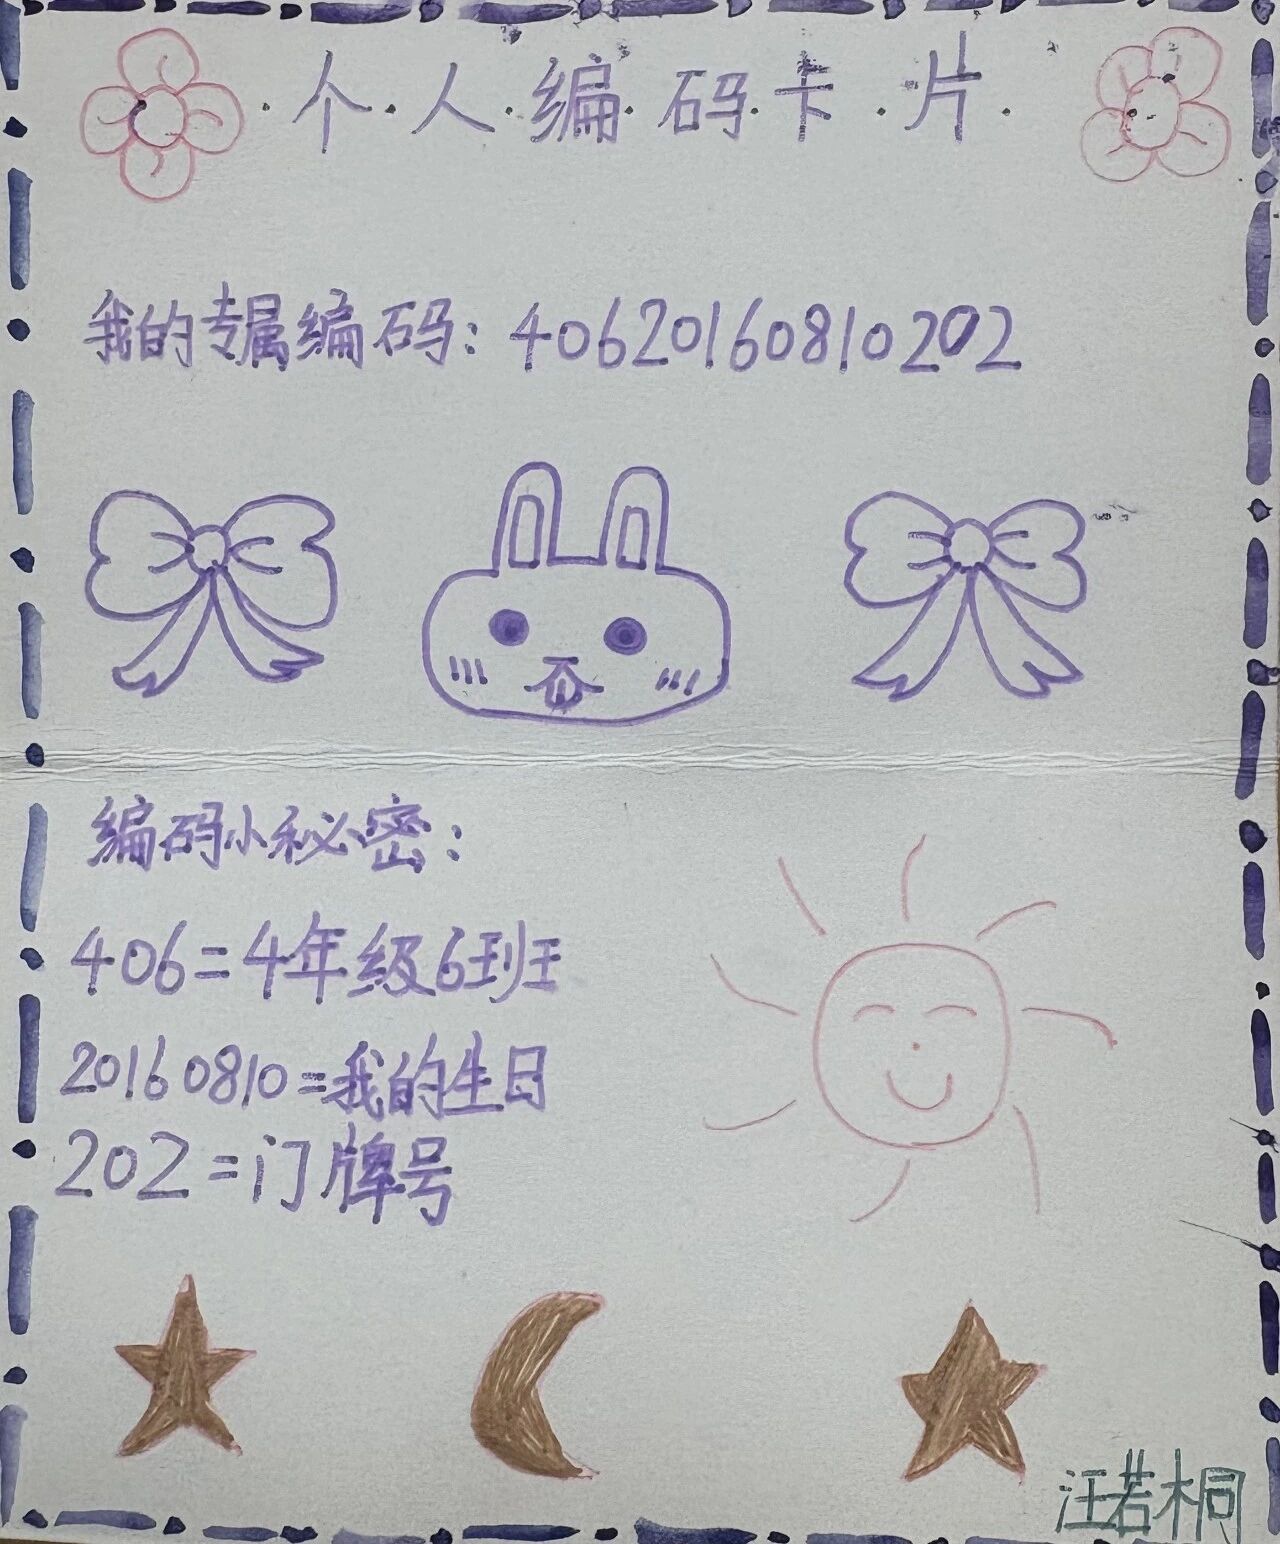 ·个·人·编·码·卡·片·
我的专属编码：40620160810202
编码小秘密：
406=4年级6班
20160810=我的生日
202=门牌号
汪若桐